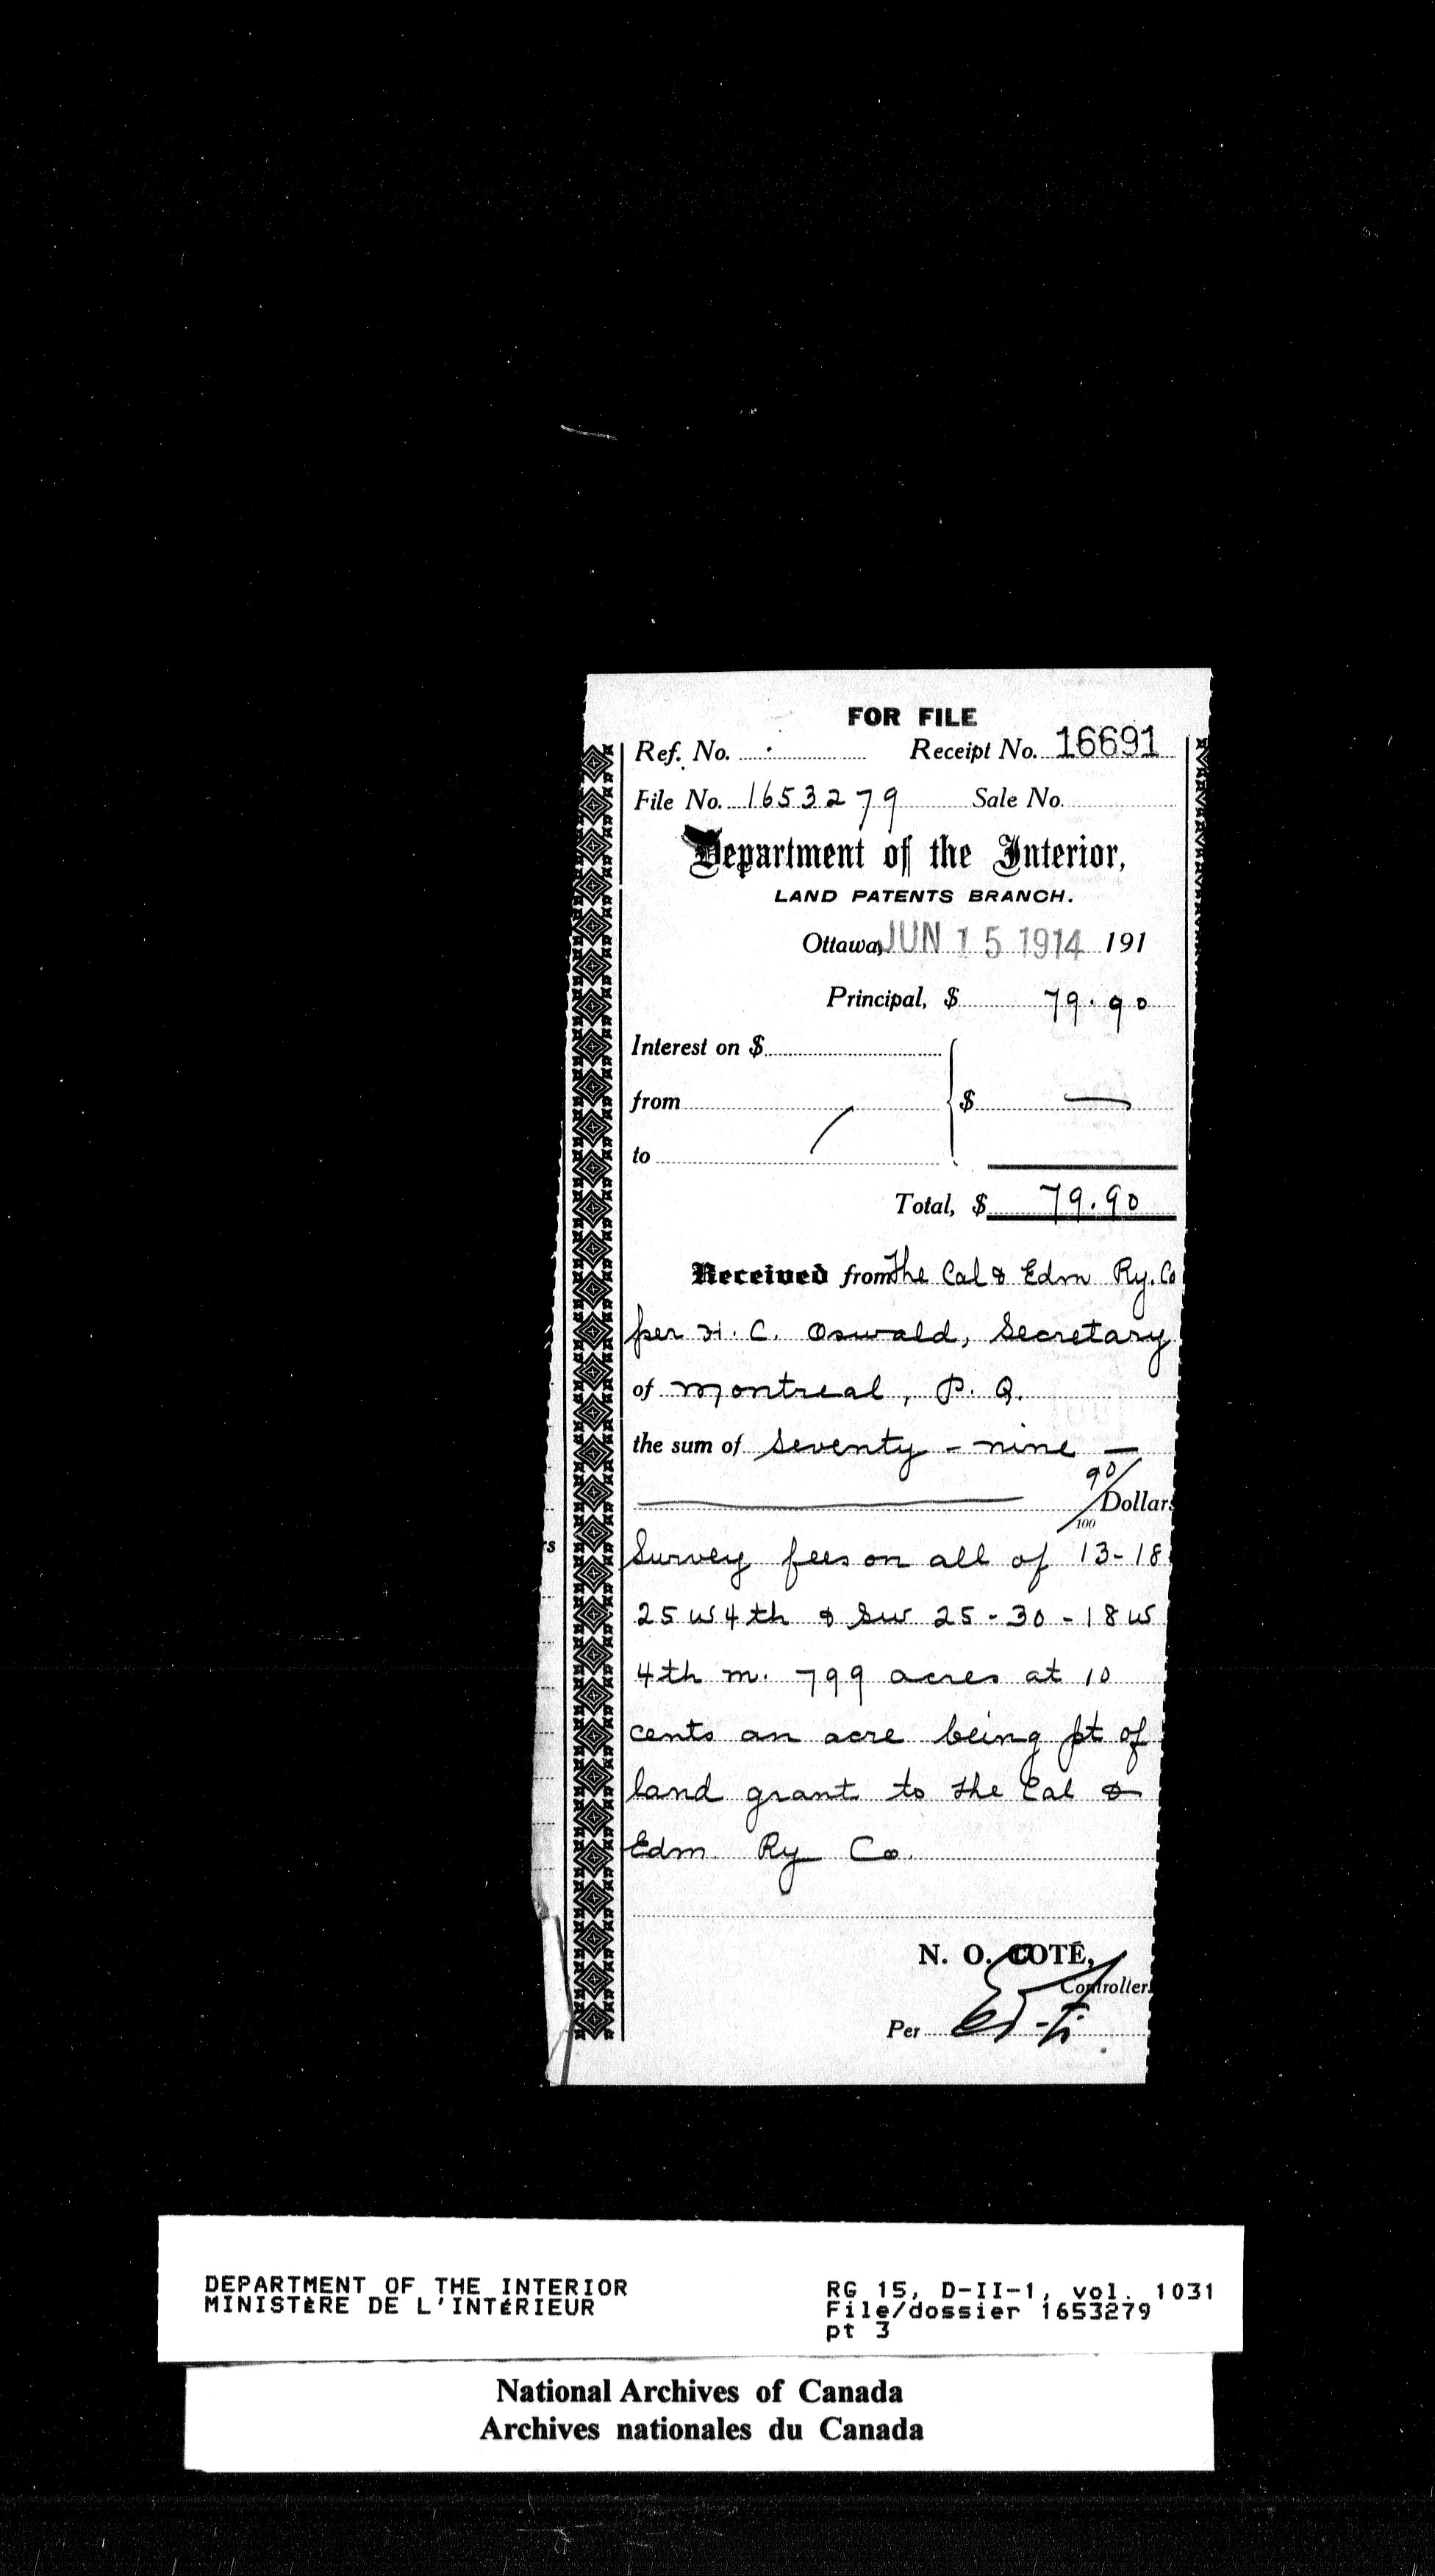 FOR FILE
Ref. No. Receipt No. 16691
File No. 1653279 Sale No.
Department of the Interior,
LAND PATENTS BRANCH.
Ottawa, JUN 15 1914 191
Principal, $ 79.90
Interest on $
from $ —
to
Total, $ 79.90
Received from The Cal & Edm Ry. Co
per H. C. Oswald, Secretary
of Montreal, P. Q.
the sum of Seventy - nine —
90/100 Dollars
Survey fees on all of 13-18
25 W 4th & SW 25-30-18 W
4th m. 799 acres at 10
cents an acre being pt of
land grant to the Cal &
Edm. Ry Co.
N. O. COTÉ,
Controller.
Per
s
DEPARTMENT OF THE INTERIOR
MINISTÈRE DE L'INTÉRIEUR
RG 15, D-II-1, vol. 1031
File/dossier 1653279
pt 3
National Archives of Canada
Archives nationales du Canada